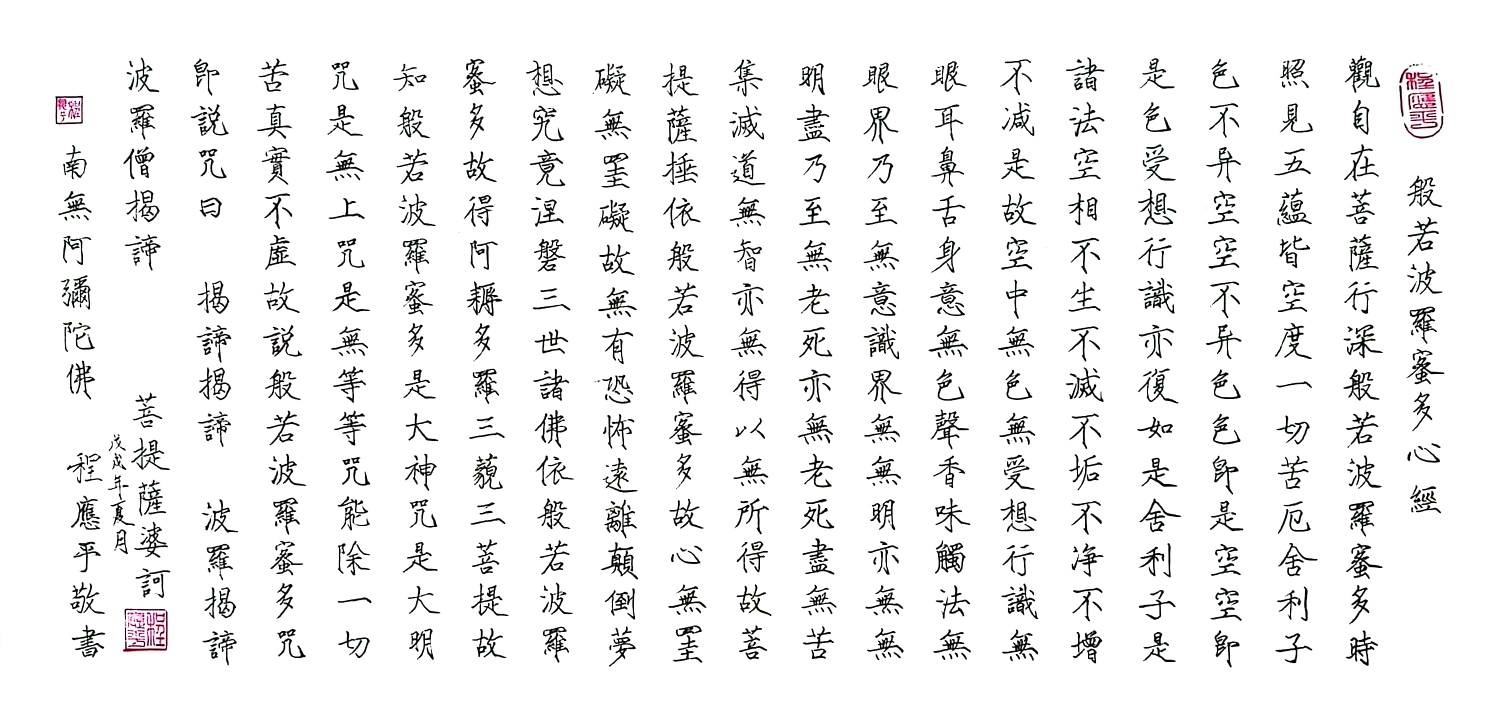 般若波羅蜜多心經
觀自在菩薩行深般若波羅蜜多時
照見五蘊皆空度一切苦厄舍利子
色不异空空不异色色即是空空即
是色受想行識亦復如是舍利子是
諸法空相不生不滅不垢不净不增
不减是故空中無色無受想行識無
眼耳鼻舌身意無色聲香味觸法無
眼界乃至無意識界無無明亦無無
明盡乃至無老死亦無老死盡無苦
集滅道無智亦無得以無所得故菩
提薩埵依般若波羅蜜多故心無罣
礙無罣礙故無有恐怖遠離顛倒夢
想究竟涅磐三世諸佛依般若波羅
蜜多故得阿耨多羅三藐三菩提故
知般若波羅蜜多是大神咒是大明
咒是無上咒是無等等咒能除一切
苦真實不虛故説般若波羅蜜多咒
即説咒曰 揭諦揭諦 波羅揭諦
波羅僧揭諦 菩提薩婆訶
戊戌年夏月
南無阿彌陀佛 程應平敬書